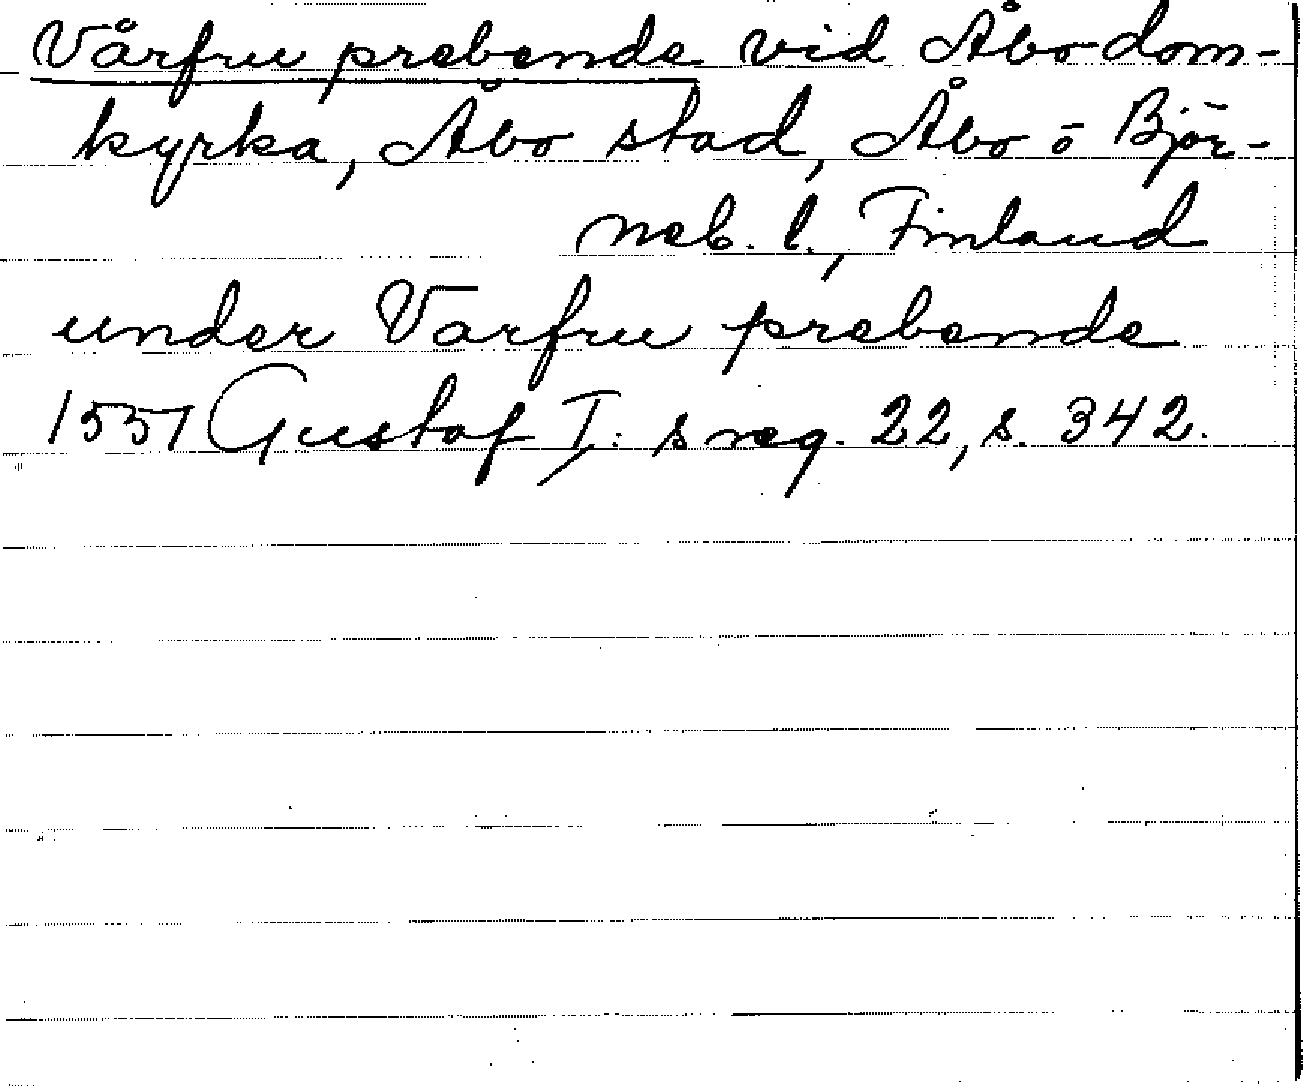 Vårfru prebende vid Åbo dom-
kyrka, Åbo stad, Åbo o Björ-
neb. l., Finland
under Varfru prebende
1551 Gustaf I: s reg. 22, s. 342.